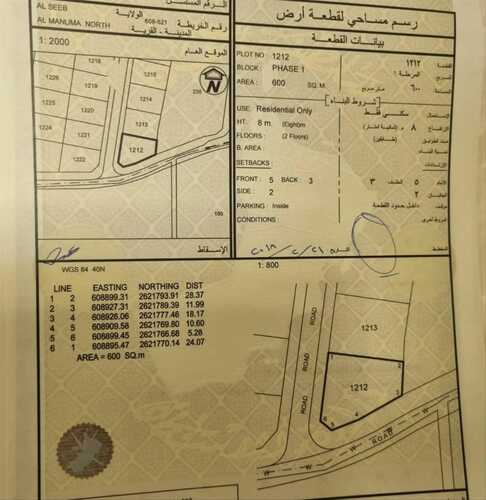 الرقم المسلسل
AL SEEB
الولاية
رقم الخريطة
608-621
AL MANUMA NORTH
المدينة - القرية
1: 2000
الموقع العام
1226
1218
1215
236
1225
1219
1214
1224
1220
1213
1221
1212
1222
186
الإسقاط
رسم مساحي لقطعة أرض
بيانات القطعة
PLOT NO
1212
١٢١٢
القطعة
BLOCK :
PHASE 1
المرحلة ١
المربع
AREA :
600
SQ.M.
متر مربع
٦٠٠
المساحة
شروط البناء
USE:
Residential Only
سكني فقط
HT:
8 m.
(Eight)m
٨
الإرتفاع
FLOORS :
(2 Floors)
(طابقين)
B. AREA :
نسبة البناء
SETBACKS :
الإرتدادات
FRONT :
5
BACK :
3
٣
الخلف
٥
الأمام
SIDE :
2
٢
الجانبان
PARKING :
Inside
داخل حدود القطعة
CONDITIONS :
شروط أخرى
المخطط
WGS 84 40N
1: 800
LINE EASTING NORTHING DIST
1 2 608899.31 2621793.91 28.37
2 3 608927.31 2621789.39 11.99
3 4 608926.06 2621777.46 18.17
4 5 608909.58 2621769.80 10.60
5 6 608899.45 2621766.68 5.28
6 1 608895.47 2621770.14 24.07
AREA = 600 SQ.m
ROAD
ROAD
1213
1
2
1212
3
6
5
4
W
W
W
ROAD
W
W